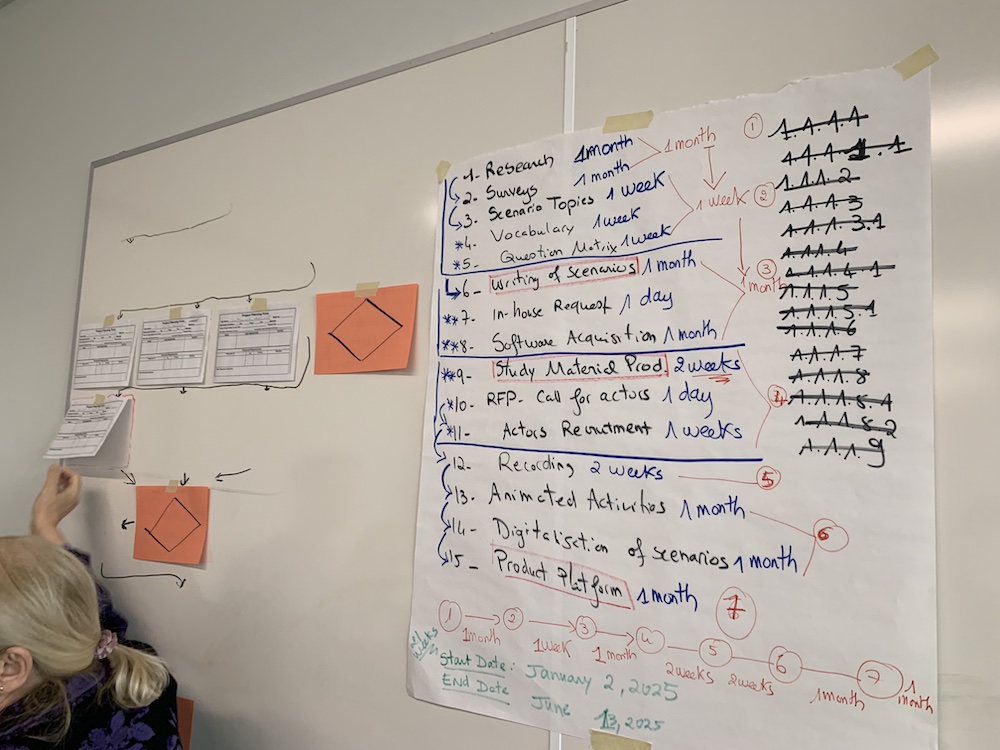 1- Research 1month
2- Surveys 1 month
3- Scenario Topics 1 week
*4- Vocabulary 1week
*5- Question Matrix 1week
6- Writing of scenarios 1 month
**7- In-house Request 1 day
**8- Software Acquisition 1 month
**9- Study Material Prod. 2 weeks
*10- RFP- Call for actors 1 day
*11- Actors Recruitment 1 weeks
12- Recording 2 weeks
13- Animated Activities 1 month
14- Digitalisation of scenarios 1 month
15- Product Platform 1 month
1 month
1 week
1 month
4
5
6
7
1
1.1.1.1
1.1.1.1.1
2
1.1.1.2
1.1.1.3
1.1.1.3.1
1.1.1.4
3
1.1.1.4.1
1.1.1.5
1.1.1.5.1
1.1.1.6
1.1.1.7
1.1.1.8
1.1.1.8.1
1.1.1.8.2
1.1.1.9
1 2 3 4 5 6 7
1month 1week 1 month 2weeks 2weeks 1month 1 month
Start Date: January 2, 2025
End Date June 13, 2025